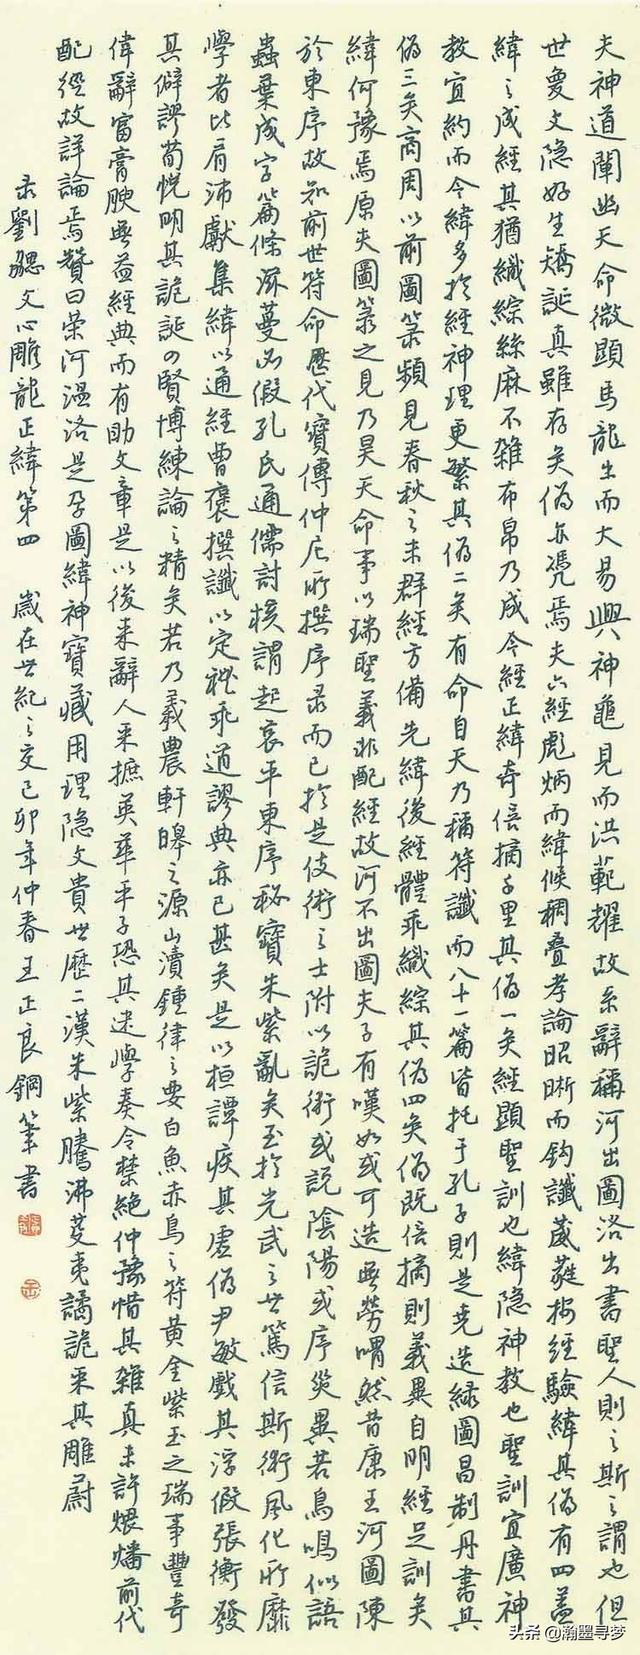 夫神道闡幽天命微顯馬龍出而大易興神龜見而洪範耀故系辭稱河出圖洛出書聖人則之斯之謂也但
世夐文隐好生矯誕真雖存矣偽亦凭焉夫六經彪炳而緯候稠疊孝論昭晰而鈎讖葳蕤按經驗緯其偽有四盖
緯之成經其猶織綜絲麻不雜布帛乃成今經正緯奇倍摘千里其偽一矣經顯聖訓也緯隐神教也聖訓宜廣神
教宜約而今緯多於經神理更繁其偽二矣有命自天乃稱符讖而八十一篇皆托于孔子則是堯造緑圖昌制丹書其
偽三矣商周以前圖箓頻見春秋之末群經方備先緯後經體乖織綜其偽四矣偽既倍摘則義異自明經足訓矣
緯何豫焉原夫圖箓之見乃昊天命事以瑞聖義非配經故河不出圖夫子有嘆如或可造無勞喟然昔康王河圖陳
於東序故知前世符命歷代寶傳仲尼所撰序录而已於是伎術之士附以詭術或説陰陽或序災異若鳥鳴似語
蟲葉成字篇條滋蔓必假孔氏通儒討核謂起哀平東序秘寶朱紫亂矣至於光武之世篤信斯術風化所靡
學者比肩沛獻集緯以通經曹褒撰讖以定禮乖道謬典亦已甚矣是以桓譚疾其虚偽尹敏戲其浮假張衡發
其僻謬荀悦明其詭誕四賢博練論之精矣若乃義農軒皞之源山瀆鍾律之要白魚赤烏之符黄金紫玉之瑞事豐奇
偉辭富膏腴無益經典而有助文章是以後來辭人采摭英華平子恐其迷學奏令禁絶仲豫惜其雜真未許煨燔前代
配經故詳論焉贊曰荣河温洛是孕圖緯神寶藏用理隐文貴世歷二漢朱紫騰沸芟夷譎詭采其雕蔚
录劉勰文心雕龍正緯第四 歲在世紀之交己卯年仲春王正良鋼筆書
头条 @瀚墨寻梦